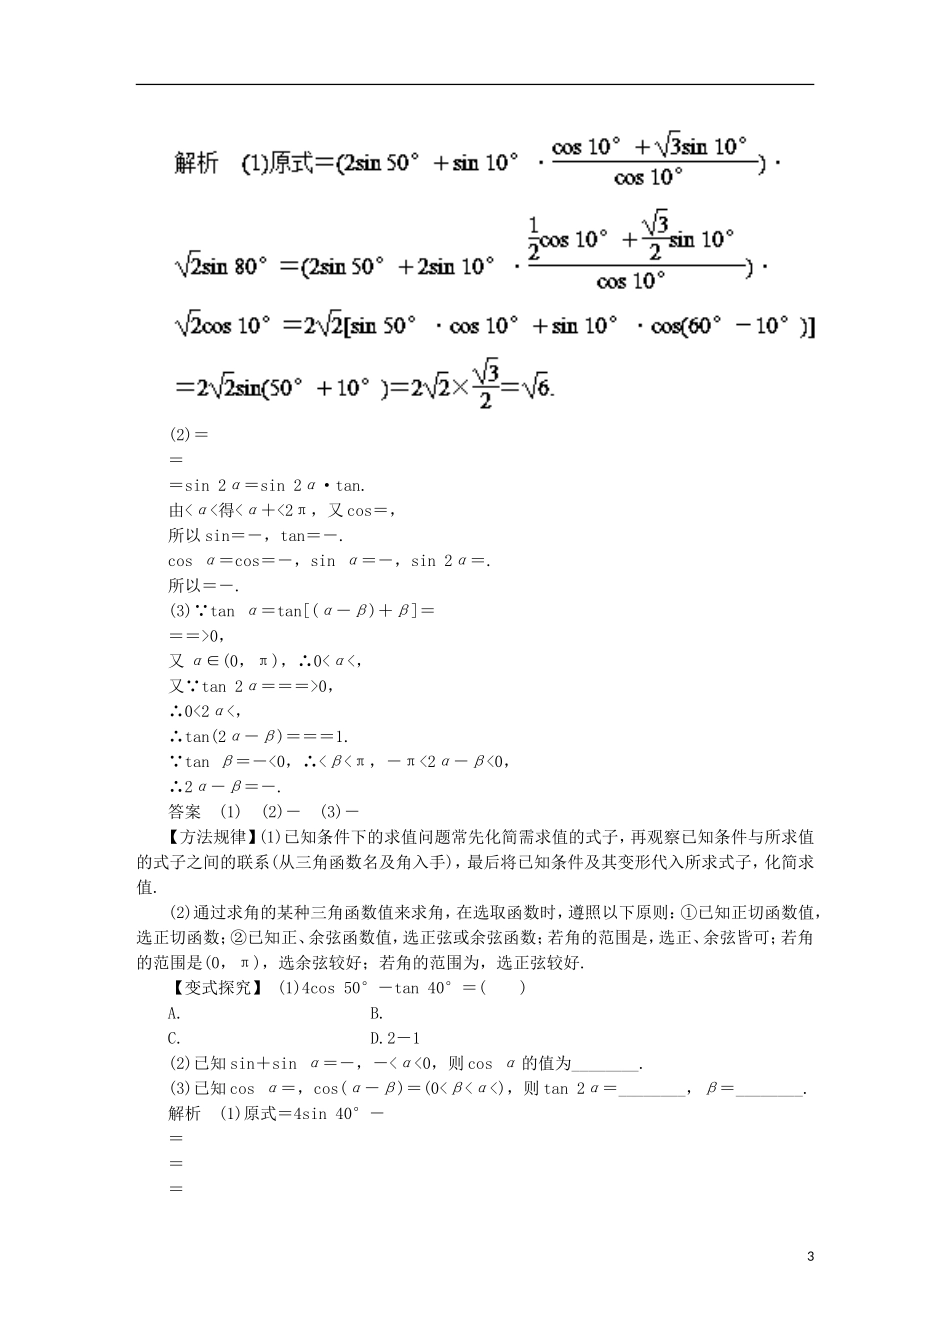 解析 (1)原式＝(2sin 50°＋sin 10°·(cos 10°＋√3sin 10°)/(cos 10°))·
√2sin 80°＝(2sin 50°＋2sin 10°·(1/2cos 10°＋√3/2sin 10°)/(cos 10°))·
√2cos 10°＝2√2[sin 50°·cos 10°＋sin 10°·cos(60°－10°)]
＝2√2sin(50°＋10°)＝2√2×√3/2＝√6.
(2)＝
＝
＝sin 2α＝sin 2α·tan.
由<α<得<α＋<2π，又 cos＝，
所以 sin＝－，tan＝－.
cos α＝cos＝－，sin α＝－，sin 2α＝.
所以＝－.
(3)∵tan α＝tan[(α－β)＋β]＝
＝＝>0，
又 α∈(0，π)，∴0<α<，
又∵tan 2α＝＝＝>0，
∴0<2α<，
∴tan(2α－β)＝＝＝1.
∵tan β＝－<0，∴<β<π，－π<2α－β<0，
∴2α－β＝－.
答案 (1) (2)－ (3)－
【方法规律】(1)已知条件下的求值问题常先化简需求值的式子，再观察已知条件与所求值
的式子之间的联系(从三角函数名及角入手)，最后将已知条件及其变形代入所求式子，化简求
值.
(2)通过求角的某种三角函数值来求角，在选取函数时，遵照以下原则：①已知正切函数值，
选正切函数；②已知正、余弦函数值，选正弦或余弦函数；若角的范围是，选正、余弦皆可；若角
的范围是(0，π)，选余弦较好；若角的范围为，选正弦较好.
【变式探究】 (1)4cos 50°－tan 40°＝( )
A. B.
C. D.2－1
(2)已知 sin＋sin α＝－，－<α<0，则 cos α 的值为________.
(3)已知 cos α＝，cos(α－β)＝(0<β<α<)，则 tan 2α＝________，β＝________.
解析 (1)原式＝4sin 40°－
＝
＝
＝
3